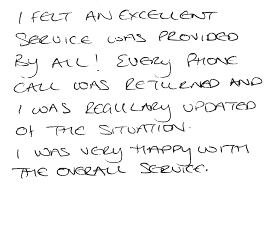 I FELT AN EXCELLENT
SERVICE WAS PROVIDED
BY ALL! EVERY PHONE
CALL WAS RETURNED AND
I WAS REGULARY UPDATED
OF THE SITUATION.
I WAS VERY HAPPY WITH
THE OVERALL SERVICE.